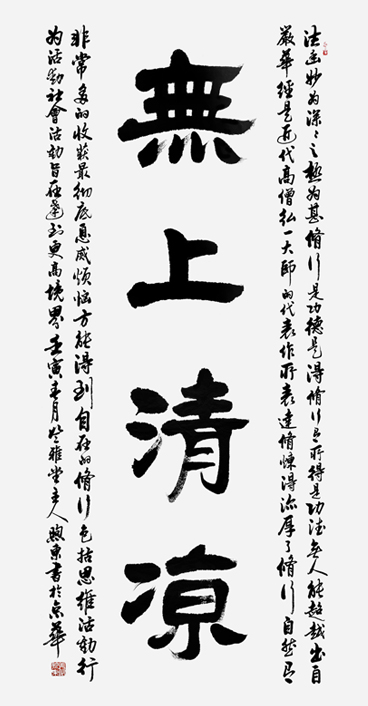 法幽妙为深〻之極为甚脩行是功德是得脩行之所得是功德無人能超越出自
嚴華經是近代高僧弘一大師的代表作所表達脩煉得深厚了脩行自然有
無上清凉
非常多的收获最彻底息减烦恼方能得到自在的脩行包括思維活動行
为活動社會活動旨在達到更高境界壬寅春月 雅堂主人煦東書於京華